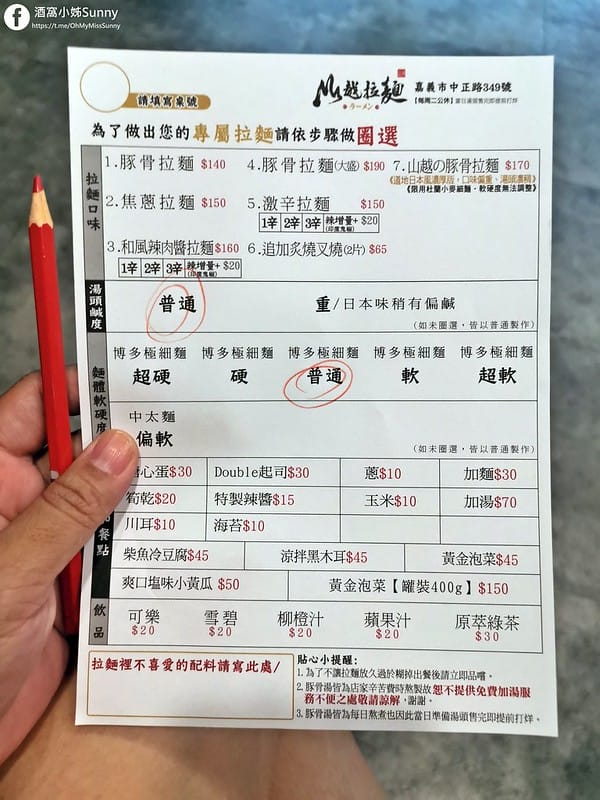 酒窩小姊Sunny
https://t.me/OhMyMissSunny
請填寫桌號
山越拉麵
ラーメン
嘉義市中正路349號
【每周二公休】當日湯頭售完即提前打烊
為了做出您的專屬拉麵請依步驟做圈選
拉麵口味
1.豚骨拉麵 $140 4.豚骨拉麵(大盛) $190 7.山越の豚骨拉麵 $170
《道地日本風濃厚版，口味偏重、湯頭濃稠》
《限用杜蘭小麥細麵，軟硬度無法調整》
2.焦蔥拉麵 $150 5.激辛拉麵 $150
1辛 2辛 3辛 辣增量+$20
(印度鬼椒)
3.和風辣肉醬拉麵$160 6.追加炙燒叉燒(2片) $65
1辛 2辛 3辛 辣增量+$20
(印度鬼椒)
湯頭鹹度
普通 重/日本味稍有偏鹹
(如未圈選，皆以普通製作)
麵體軟硬度
博多極細麵 博多極細麵 博多極細麵 博多極細麵 博多極細麵
超硬 硬 普通 軟 超軟
中太麵
偏軟
(如未圈選，皆以普通製作)
心蛋$30 Double起司$30 蔥$10 加麵$30
筍乾$20 特製辣醬$15 玉米$10 加湯$70
川耳$10 海苔$10
餐點
柴魚冷豆腐$45 涼拌黑木耳$45 黃金泡菜$45
爽口塩味小黃瓜 $50 黃金泡菜【罐裝400g】$150
飲品
可樂 雪碧 柳橙汁 蘋果汁 原萃綠茶
$20 $20 $20 $20 $30
拉麵裡不喜愛的配料請寫此處/
貼心小提醒：
1.為了不讓拉麵放久過於糊掉出餐後請立即品嚐。
2.豚骨湯皆為店家辛苦費時熬製故恕不提供免費加湯服
務不便之處敬請諒解，謝謝。
3.豚骨湯皆為每日熬煮也因此當日準備湯頭售完即提前打烊。